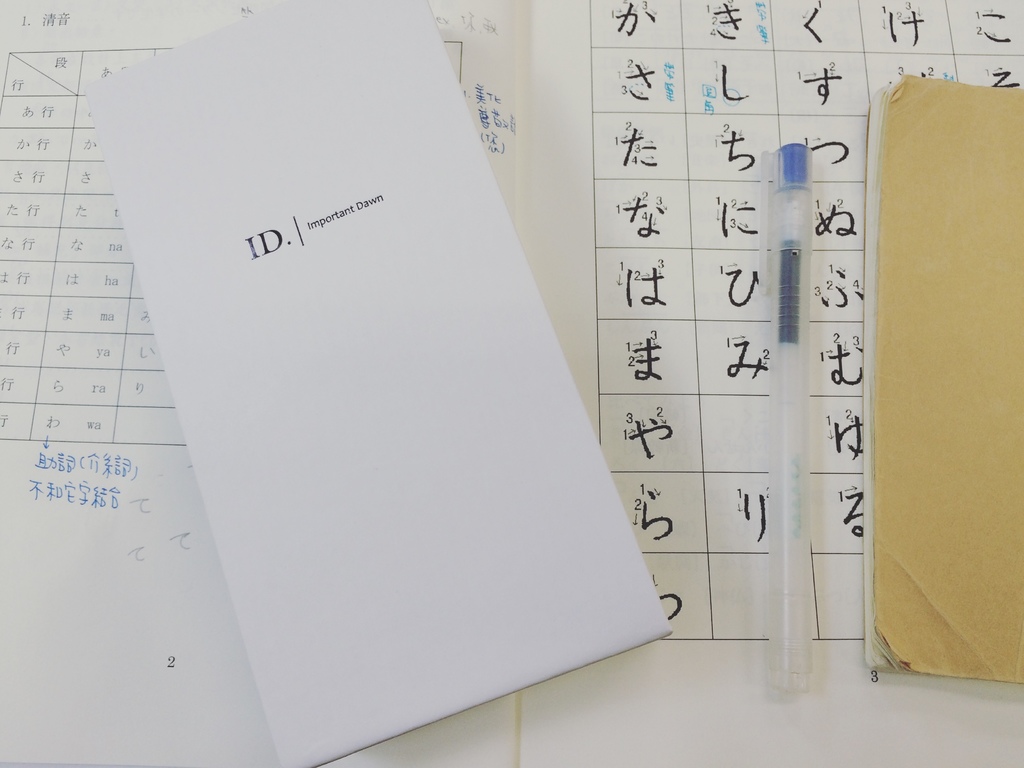 1. 清音
段
行
あ
あ 行
か 行 か
さ 行 さ
た 行 た t
な 行 な na
は 行 は ha
行 ま ma み
行 や ya い
行 ら ra り
行 わ wa
助詞(介系詞)
不和它字結合
て
て
て
2
美化
ID. | Important Dawn
か き く け こ
さ し す そ
た ち つ
な に ぬ
は ひ ふ
ま み む
や ゆ
ら り る
わ
3